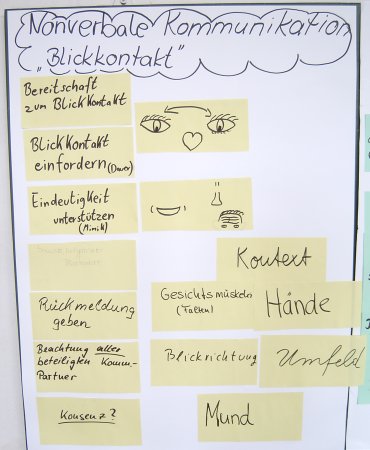 Nonverbale Kommunikation
„Blickkontakt"
Bereitschaft
zum Blickkontakt
Blickkontakt
einfordern (Dauer)
Eindeutigkeit
unterstützen
(Mimik)
Kontext
Rückmeldung
geben
Gesichtsmuskeln
(Falten)
Hände
Beachtung aller
beteiligten Komm.-
Partner
Blickrichtung
Umfeld
Konsenz?
Mund